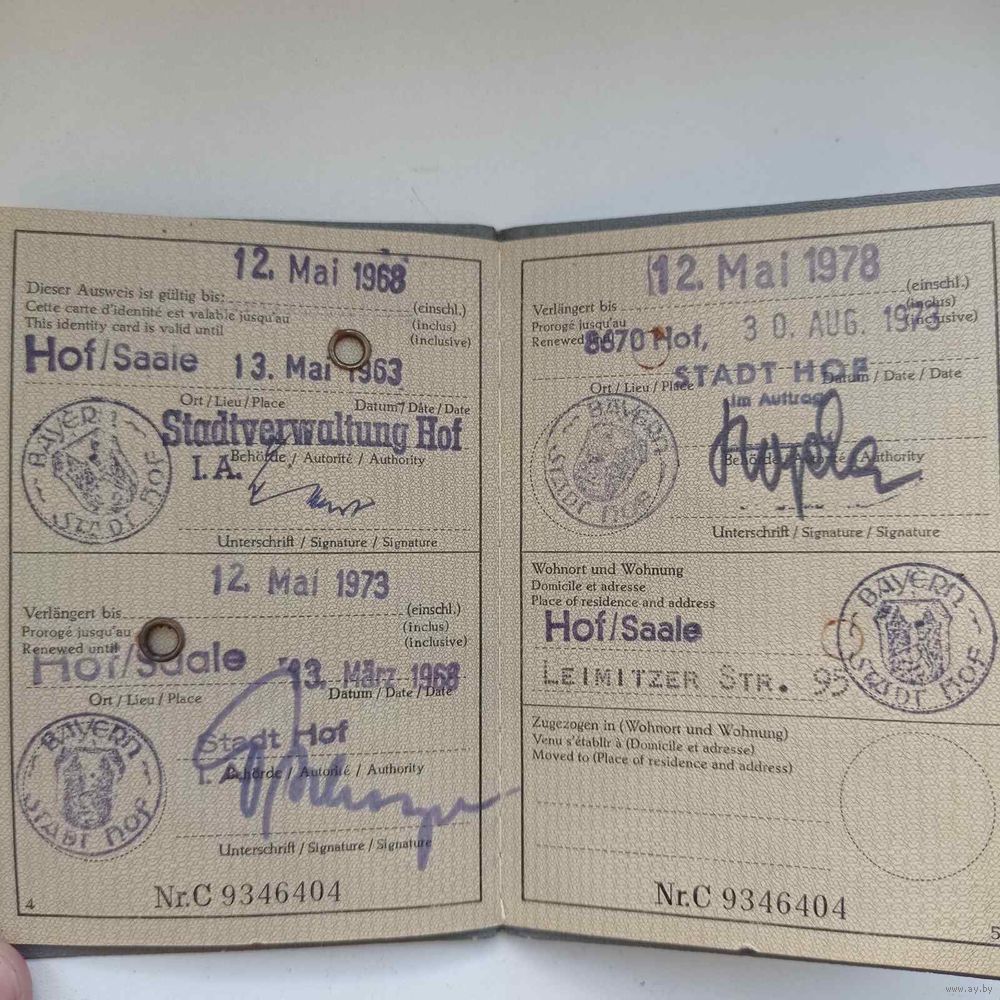 12. Mai 1968
Dieser Ausweis ist gültig bis: (einschl.)
Cette carte d'identité est valable jusqu'au (inclus)
This identity card is valid until (inclusive)
Hof/Saale 13. Mai 1963
Ort / Lieu / Place Datum / Date / Date
Stadtverwaltung Hof
Behörde / Autorité / Authority
I.A.
BAYERN
STADT HOF
Unterschrift / Signature / Signature
12. Mai 1973
Verlängert bis (einschl.)
Prorogé jusqu'au (inclus)
Renewed until (inclusive)
Hof/Saale 13. März 1968
Ort / Lieu / Place Datum / Date / Date
Stadt Hof
I.A. Behörde / Autorité / Authority
BAYERN
STADT HOF
Unterschrift / Signature / Signature
Nr. C 9346404
4
12. Mai 1978
Verlängert bis (einschl.)
Prorogé jusqu'au (inclus)
Renewed until (inclusive)
8670 Hof, 30. AUG. 1973
STADT HOF
Ort / Lieu / Place Datum / Date / Date
Im Auftrag
Behörde / Autorité / Authority
BAYERN
STADT HOF
Unterschrift / Signature / Signature
Wohnort und Wohnung
Domicile et adresse
Place of residence and address
Hof/Saale
LEIMITZER STR. 95
BAYERN
STADT HOF
Zugezogen in (Wohnort und Wohnung)
Venu s'établir à (Domicile et adresse)
Moved to (Place of residence and address)
Nr. C 9346404
5
www.ay.by